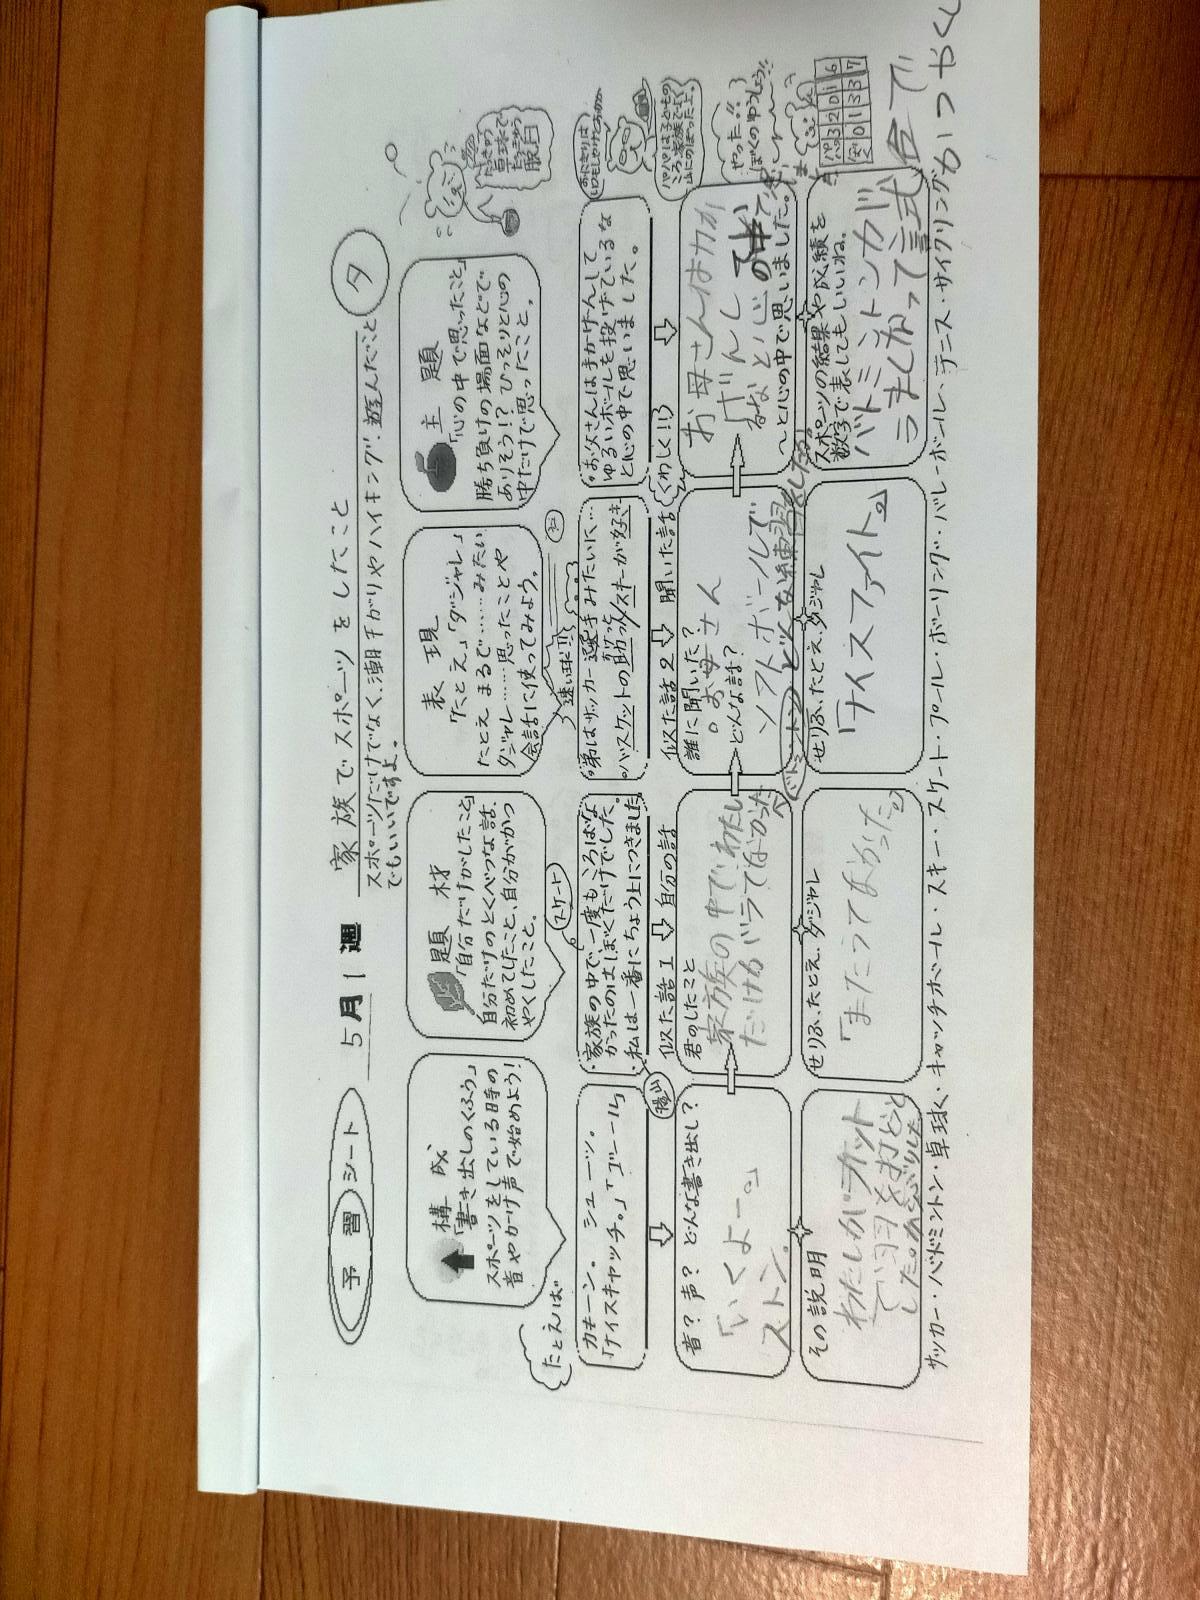 予習シート
5月1週
家族でスポーツをしたこと
スポーツだけでなく、潮干がりやハイキング、遊んだこと
でもいいですよ。
タ
構成
「書き出しのくふう」
スポーツをしている時の
音やかけ声で始めよう!
題材
「自分だけがしたこと」
自分だけのとくべつな話、
初めてしたこと、自分がかつ
やくしたこと。
表現
「たとえ」「ダジャレ」
たとえ まるで……みたい
ダジャレ……思ったことや
会話に使ってみよう。
主題
「心の中で思ったこと」
勝ち負けの場面などで
ありそう!? ひっそりと心の
中だけで思ったこと。
たとえば
カキーン。 シューッ。
「ナイスキャッチ。」「ゴール」
スケート
・家族の中で、一度もころばな
かったのはぼくだけでした。
・私は一番にちょう上につきました
登山
速い球!!
・弟はサッカー選手みたいに…
・バスケットの助っ人/スキーが好き
・お父さんは手かげんして
ゆるいボールを投げているな
と心の中で思いました。
パパは子どもの
ころ、家族でよく
山にのぼった上。
似た話1
自分の話
似た話2
聞いた話
くわしく!!
音?声? どんな書き出し?
「いくよー。」
ストン。
君のしたこと
家族の中でわたし
だけがバラてなかった
誰に聞いた?
。お母さん
どんな話?
ソフトボールで
どんな練習をしたか
お母さんは力か
げんし
るなと心の中で
〜と心の中で思いました。
やった!!
ぼくのゆうしょう!!
その説明
わたしがカット
で羽を打とと
した。からぶりした
せりふ、たとえ、ダジャレ
「またってなかった。」
せりふ、たとえ、ダジャレ
「ナイスファイト。」
スポーツの結果や成績を
数字で表してもいいね。
バトミントンが
うまくなって試合で
かつやく
パパ 3 2 0 1 6
ぼく 0 1 3 3 7
サッカー・バドミントン・卓球・キャッチボール・スキー・スケート・プール・ボーリング・バレーボール・テニス・サイクリング